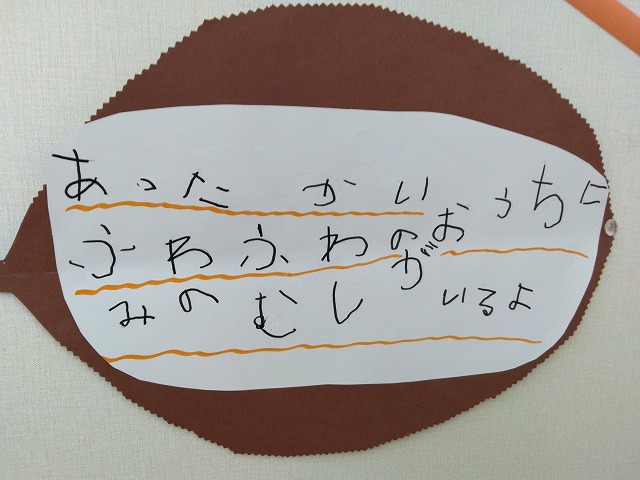 あったかい
ふわふわの おうちに
みのむしが いるよ